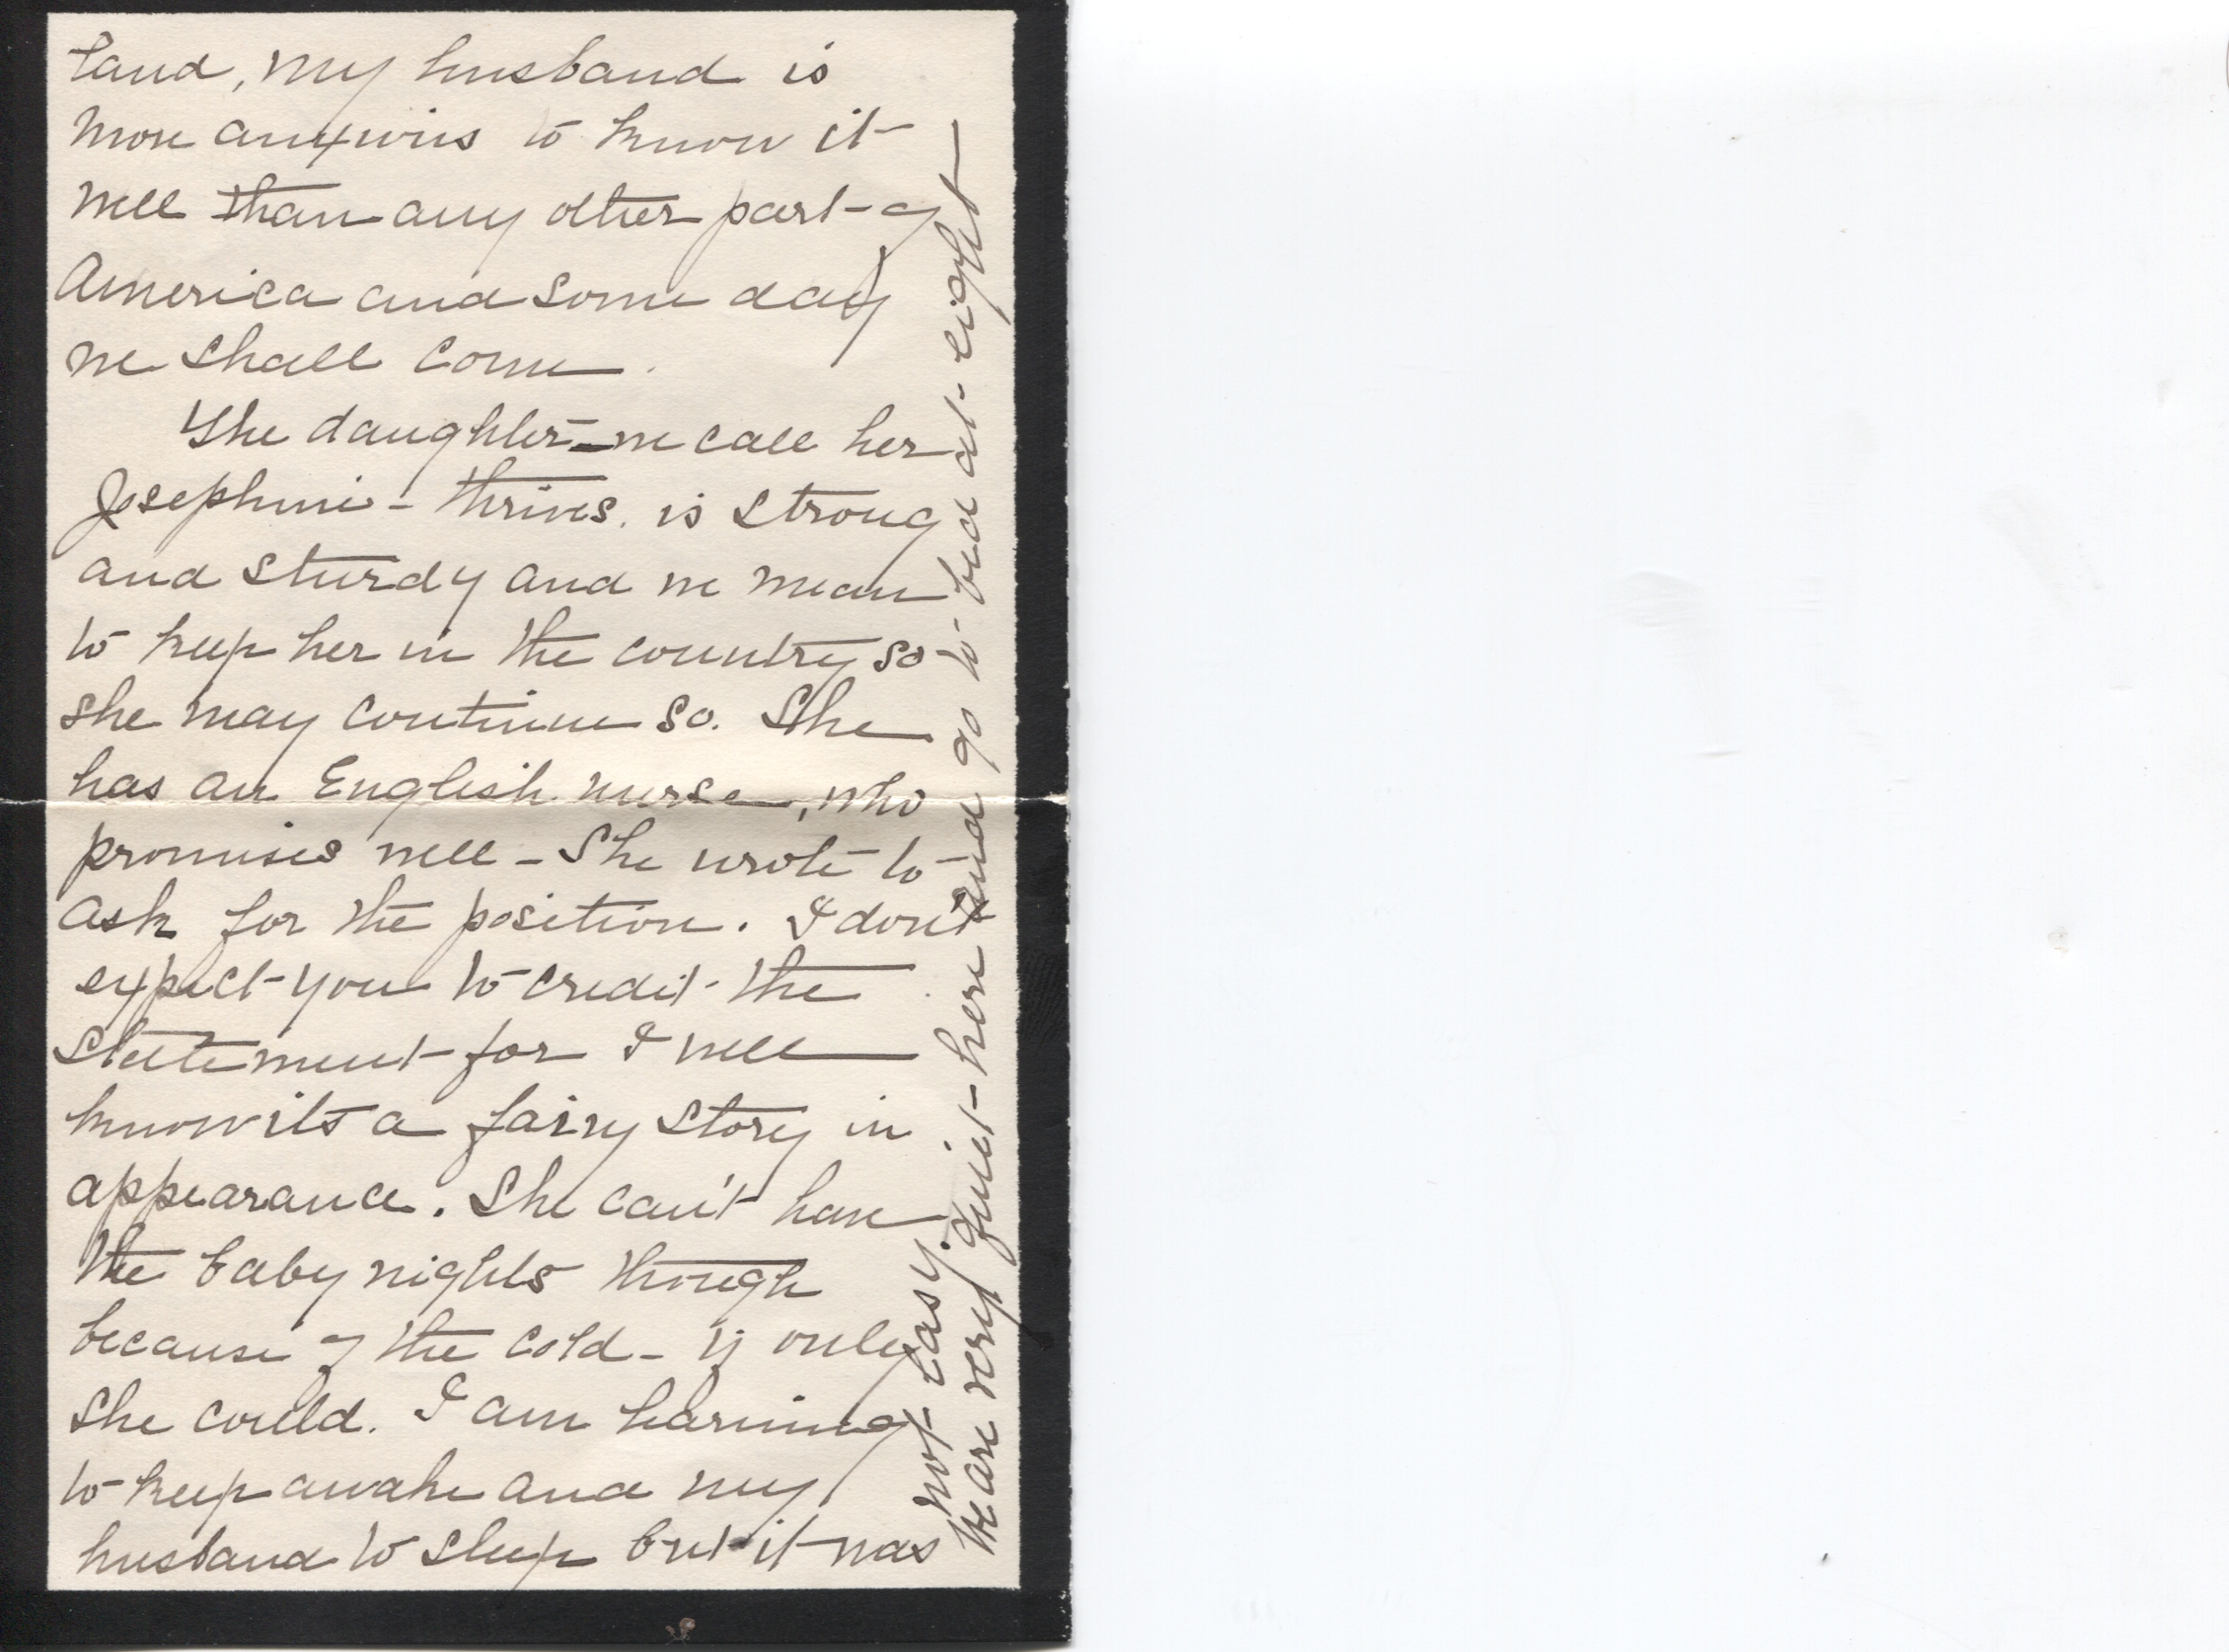 land, my husband is
more anxious to know it
well than any other part of
America and some day
we shall come.
The daughter – we call her
Josephine – thrives, is strong
and sturdy and we mean
to keep her in the country so
she may continue so. She
has an English nurse, who
promises well – She wrote to
ask for the position. I don't
expect you to credit the
statement for I well
know its a fairy story in
appearance. She can't have
the baby nights though
because of the cold – if only
she could. I am learning
to keep awake and my
husband to sleep but it was
not easy.
We are very quiet here and go to bed at eight